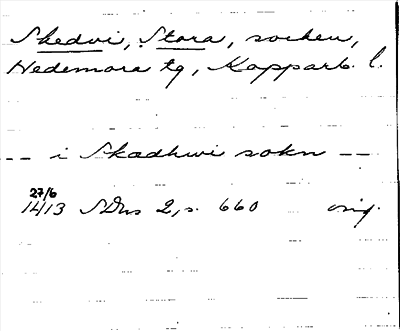 Skedvi, Stora, socken,
Hedemora tg, Kopparb. l.
-- i Skadhwi sokn --
27/6
1413 SDns 2, s. 660 orig.